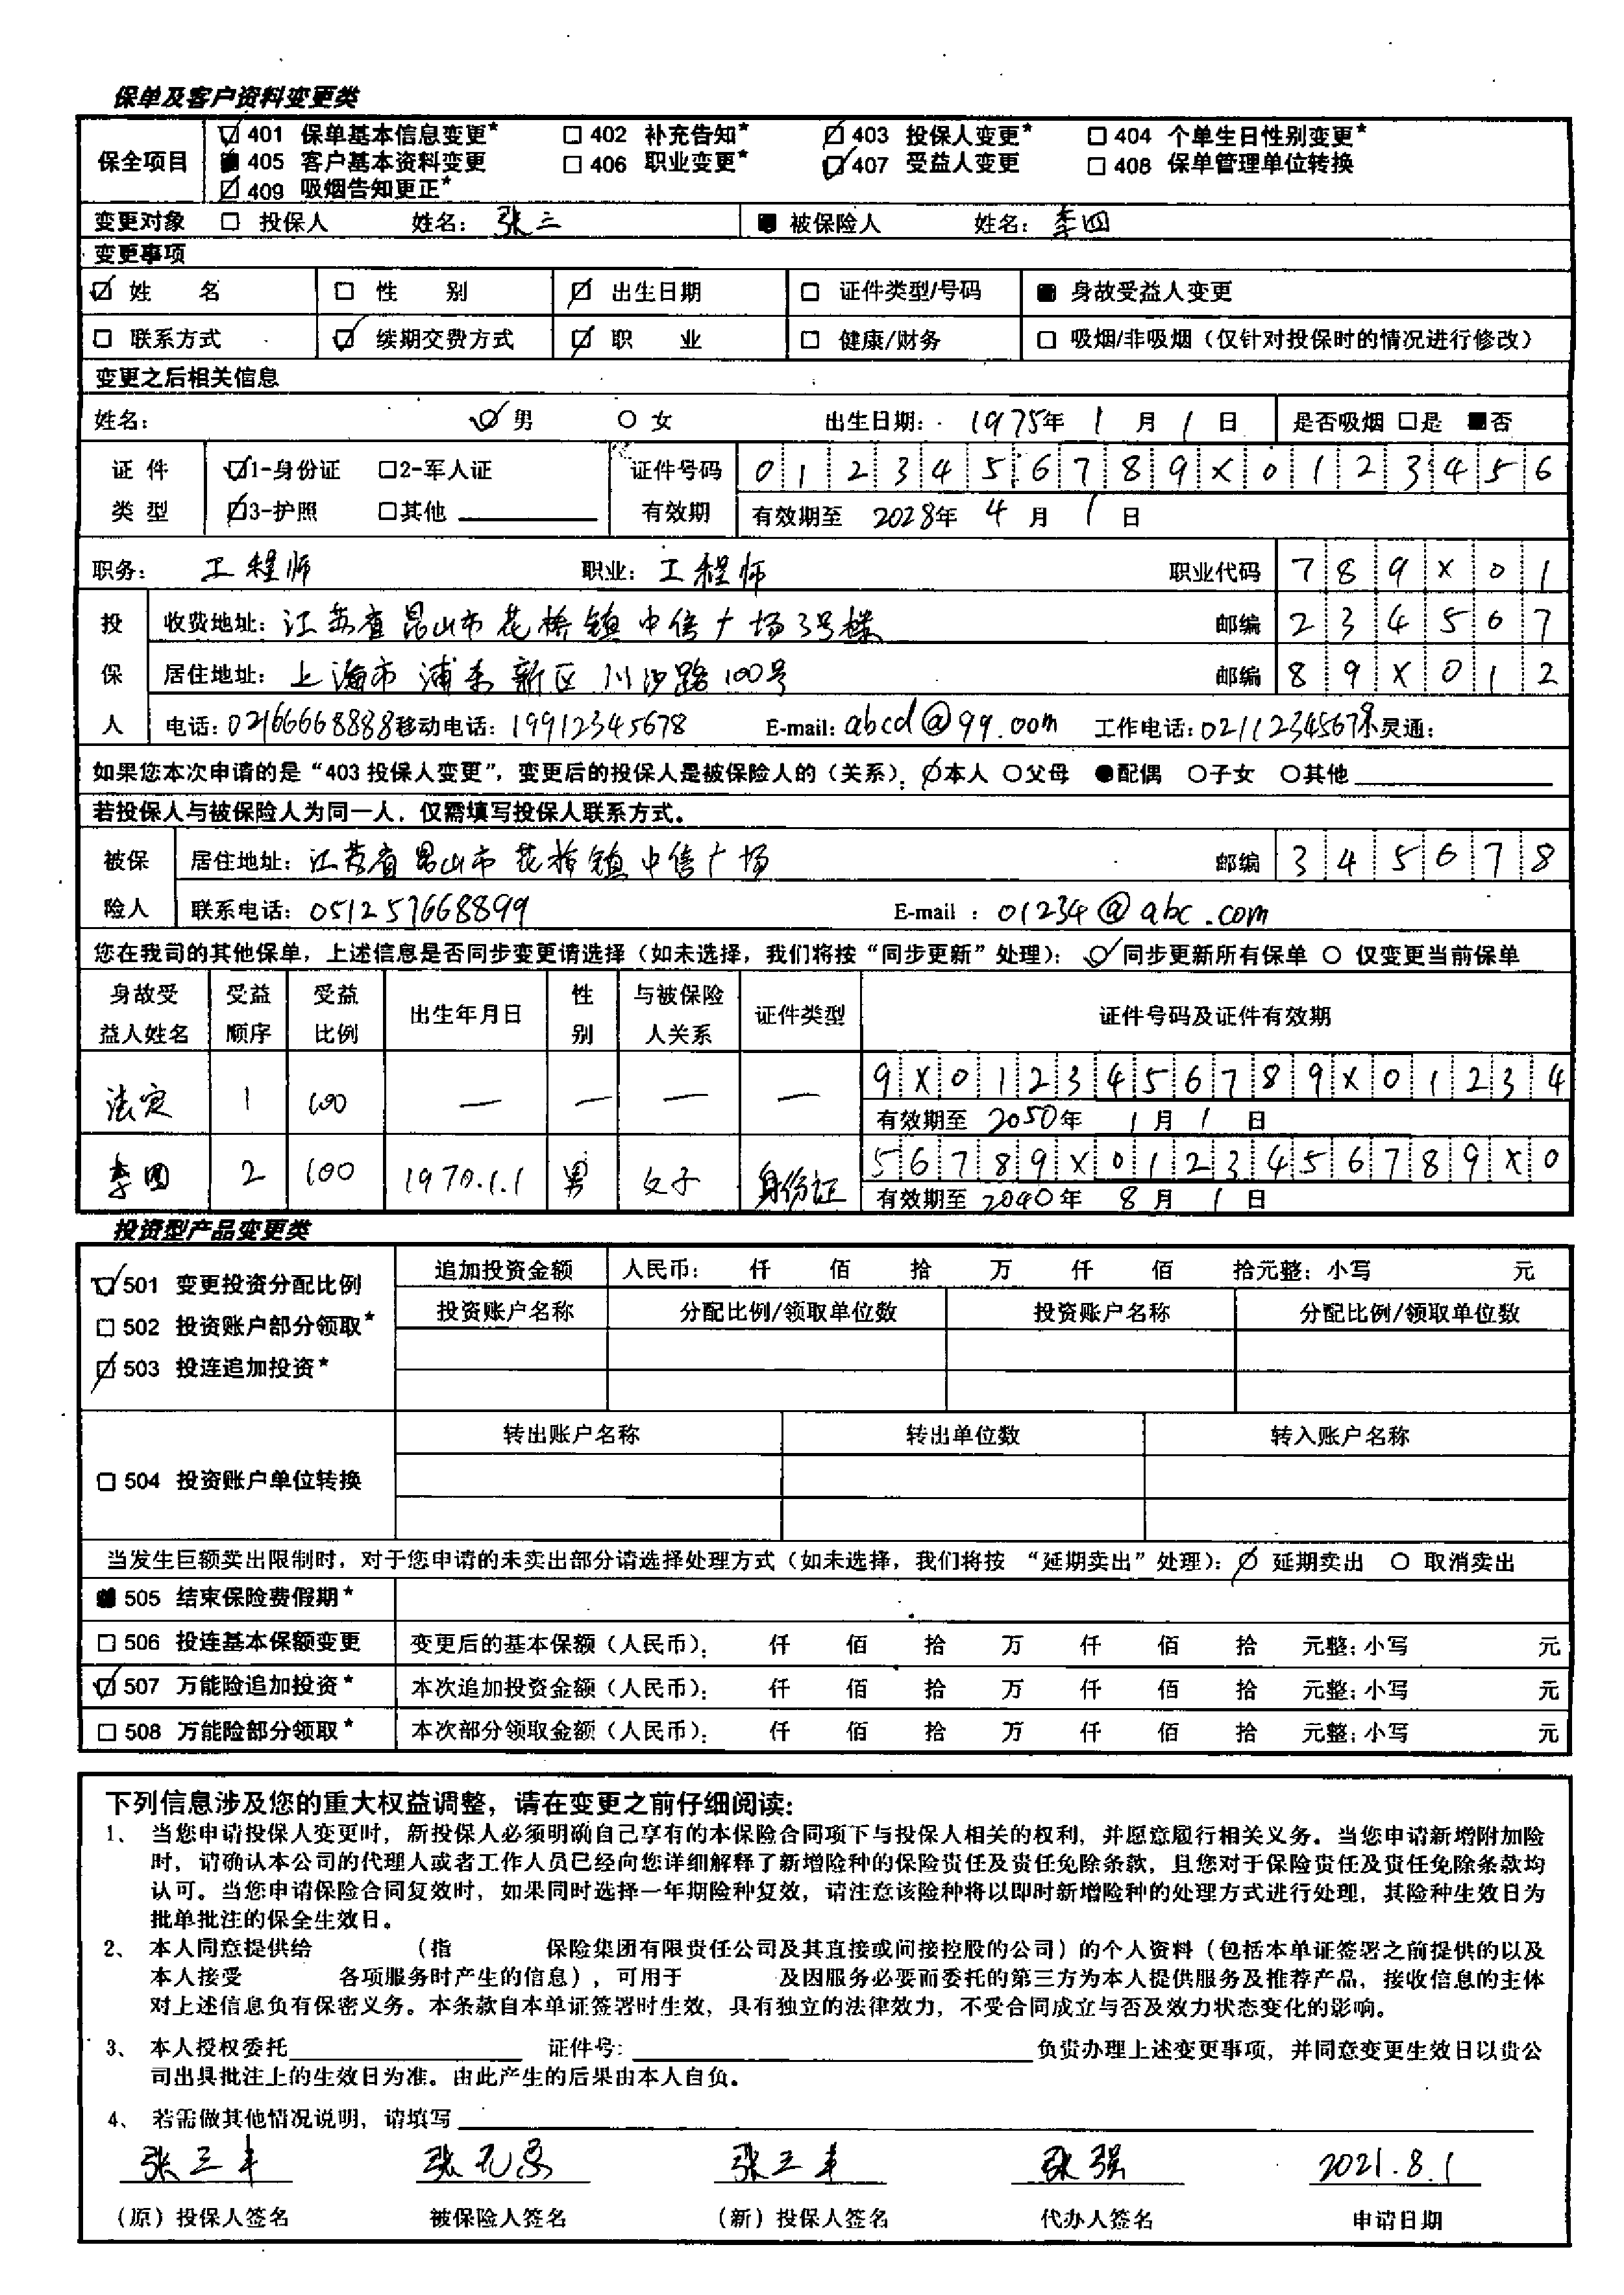 保单及客户资料变更类
保全项目 ☑401 保单基本信息变更* □402 补充告知* ☑403 投保人变更* □404 个单生日性别变更*
■405 客户基本资料变更 □406 职业变更* ☑407 受益人变更 □408 保单管理单位转换
☑409 吸烟告知更正*
变更对象 □ 投保人 姓名：张三 ■ 被保险人 姓名：李四
变更事项
☑ 姓 名 □ 性 别 ☑ 出生日期 □ 证件类型/号码 ■ 身故受益人变更
□ 联系方式 ☑ 续期交费方式 ☑ 职 业 □ 健康/财务 □ 吸烟/非吸烟（仅针对投保时的情况进行修改）
变更之后相关信息
姓名： ☑男 ○女 出生日期：1975年 1 月 1 日 是否吸烟 □是 ■否
证件类型 ☑1-身份证 □2-军人证 证件号码 0123456789X0123456
☑3-护照 □其他 有效期 有效期至 2028年 4 月 1 日
职务：工程师 职业：工程师 职业代码 789X01
投保人 收费地址：江苏省昆山市花桥镇中信广场3号楼 邮编 234567
居住地址：上海市浦东新区川沙路100号 邮编 89X012
电话：02166668888 移动电话：19912345678 E-mail：abcd@99.com 工作电话：02112345678 小灵通：
如果您本次申请的是“403 投保人变更”，变更后的投保人是被保险人的（关系）：☑本人 ○父母 ●配偶 ○子女 ○其他
若投保人与被保险人为同一人，仅需填写投保人联系方式。
被保险人 居住地址：江苏省昆山市花桥镇中信广场 邮编 345678
联系电话：051257668899 E-mail：01234@abc.com
您在我司的其他保单，上述信息是否同步变更请选择（如未选择，我们将按“同步更新”处理）：☑同步更新所有保单 ○ 仅变更当前保单
身故受益人姓名 受益顺序 受益比例 出生年月日 性别 与被保险人关系 证件类型 证件号码及证件有效期
法定 1 100 — — — — 9X0123456789X01234
有效期至 2050年 1 月 1 日
李四 2 100 1970.1.1 男 女子 身份证 56789X0123456789X0
有效期至 2040年 8 月 1 日
投资型产品变更类
☑501 变更投资分配比例 追加投资金额 人民币： 仟 佰 拾 万 仟 佰 拾元整：小写 元
□502 投资账户部分领取* 投资账户名称 分配比例/领取单位数 投资账户名称 分配比例/领取单位数
☑503 投连追加投资*
□504 投资账户单位转换 转出账户名称 转出单位数 转入账户名称
当发生巨额卖出限制时，对于您申请的未卖出部分请选择处理方式（如未选择，我们将按 “延期卖出”处理）：☑ 延期卖出 ○ 取消卖出
■505 结束保险费假期*
□506 投连基本保额变更 变更后的基本保额（人民币）： 仟 佰 拾 万 仟 佰 拾 元整；小写 元
☑507 万能险追加投资* 本次追加投资金额（人民币）： 仟 佰 拾 万 仟 佰 拾 元整；小写 元
□508 万能险部分领取* 本次部分领取金额（人民币）： 仟 佰 拾 万 仟 佰 拾 元整；小写 元
下列信息涉及您的重大权益调整，请在变更之前仔细阅读：
1、当您申请投保人变更时，新投保人必须明确自己享有的本保险合同项下与投保人相关的权利，并愿意履行相关义务。当您申请新增附加险
时，请确认本公司的代理人或者工作人员已经向您详细解释了新增险种的保险责任及责任免除条款，且您对于保险责任及责任免除条款均
认可。当您申请保险合同复效时，如果同时选择一年期险种复效，请注意该险种将以即时新增险种的处理方式进行处理，其险种生效日为
批单批注的保全生效日。
2、本人同意提供给 （指 保险集团有限责任公司及其直接或间接控股的公司）的个人资料（包括本单证签署之前提供的以及
本人接受 各项服务时产生的信息），可用于 及因服务必要而委托的第三方为本人提供服务及推荐产品，接收信息的主体
对上述信息负有保密义务。本条款自本单证签署时生效，具有独立的法律效力，不受合同成立与否及效力状态变化的影响。
3、本人授权委托 证件号： 负责办理上述变更事项，并同意变更生效日以贵公
司出具批注上的生效日为准。由此产生的后果由本人自负。
4、若需做其他情况说明，请填写
张三丰 张无忌 张三丰 张强 2021.8.1
（原）投保人签名 被保险人签名 （新）投保人签名 代办人签名 申请日期